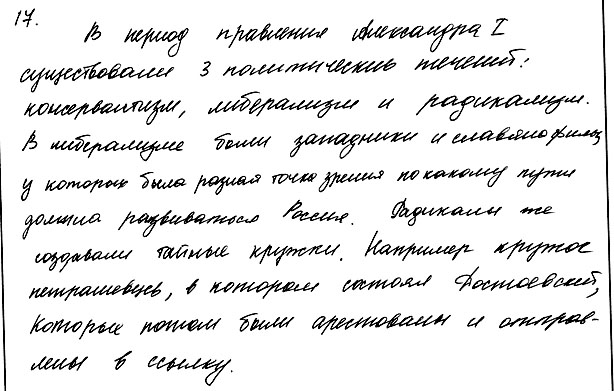 17.
В период правления Александра I
существовали 3 политических течений:
консерватизм, либерализм и радикализм.
В либерализме были западники и славянофилы,
у которых была разная точка зрения по какому пути
должна развиваться Россия. Радикалы же
создавали тайные кружки. Например кружок
петрашевцев, в котором состоял Достоевский,
которые потом были арестованы и отправ-
лены в ссылку.